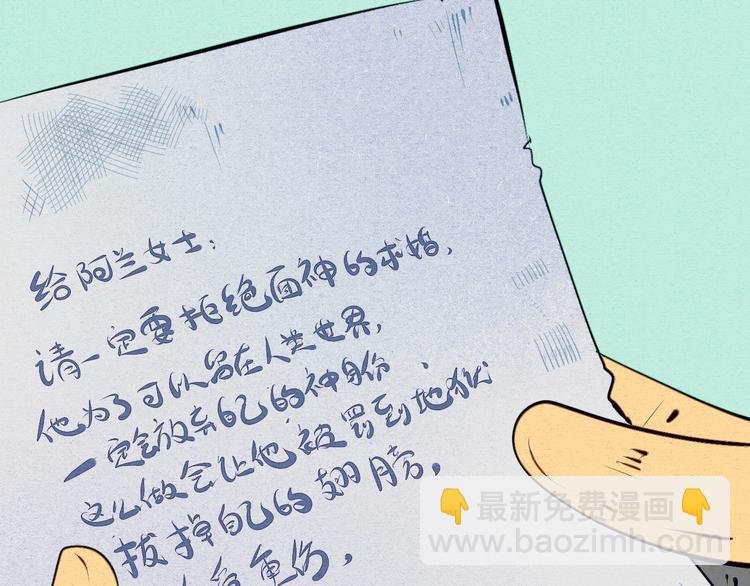 给阿兰女士：
请一定要拒绝面神的求婚，
他为了可以留在人类世界，
一定会放弃自己的神身份、
这么做会让他被罚到地狱
拔掉自己的翅膀，
重伤，
👇最新免费漫画👇
www.baozimh.com